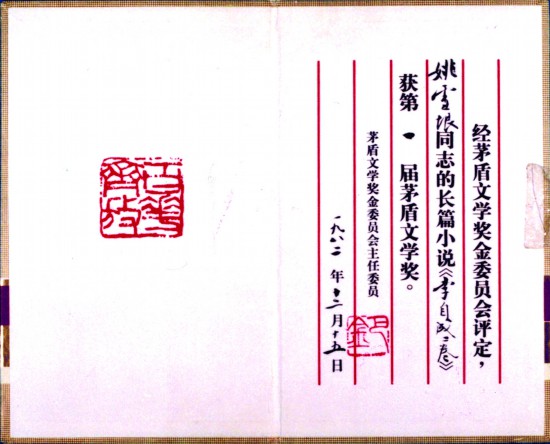 经茅盾文学奖金委员会评定，
姚雪垠同志的长篇小说《李自成二卷》
获第一届茅盾文学奖。
茅盾文学奖金委员会主任委员
巴金
一九八二年十二月十五日
百花齊放